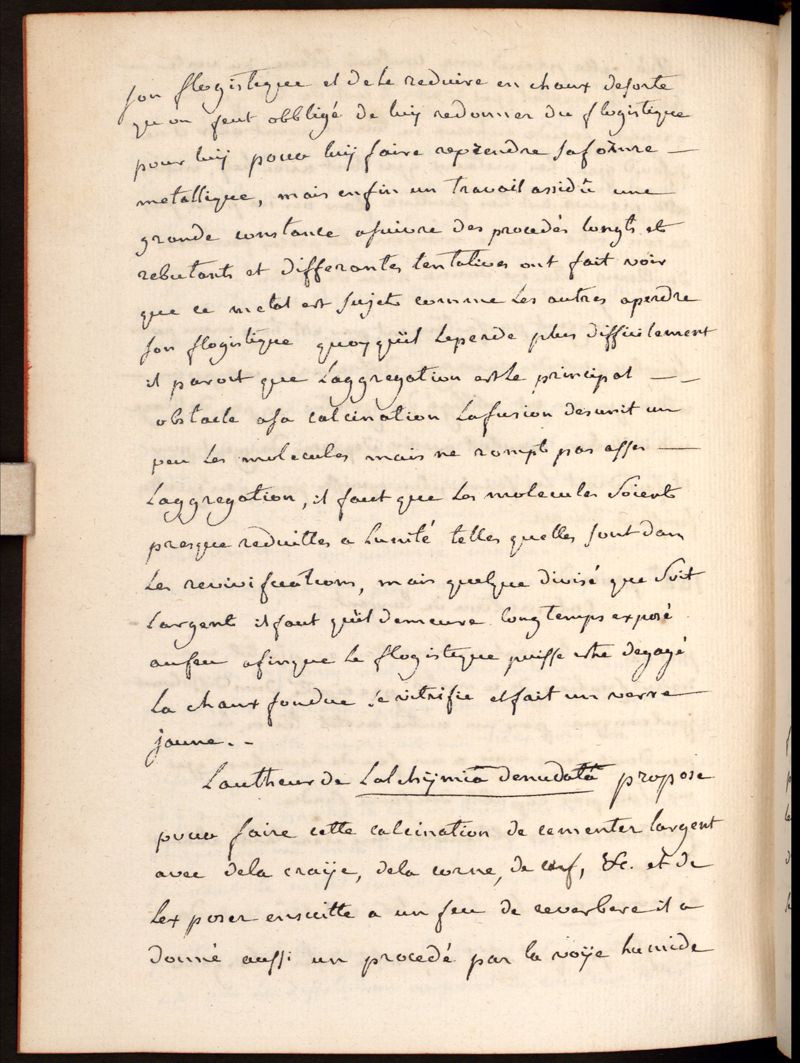 son flogistique et de le reduire en chaux desorte
qu on feut obbligé de luij redonner du flogistique
pour luij pour luij faire reprendre saforme —
metallique, mais enfin un travail assidû une
grande constance asuivre des procedés longts et
rebutants et differantes tentatives ont fait voir
que ce metal est sujets comme les autres aperdre
son flogistique quoyquïl leperde plus difficilement
il paroit que Laggregation estle principal — —
obstacle asa calcination Lafusion desunit un
peu les molecules mais ne rompt pas asses —
Laggregation, il faut que les molecules soients
presque reduittes a lunité telles quelles sont dans
les revivifications, mais quelque divisé que soit
Largent il faut quïl demeure longtemps exposé
aufeu afinque le flogistique puisse estre degagé
La chaux fondue se vitrifie etfait un verre
jaune. -
Lautheur de Lalchijmia denudata propose
pour faire cette calcination de cementer largent
avec dela craÿe, dela corne, de cerf, &c. et de
Lexposer ensuitte a un feu de reverbere il a
donné aussi un procedé par la voÿe humide